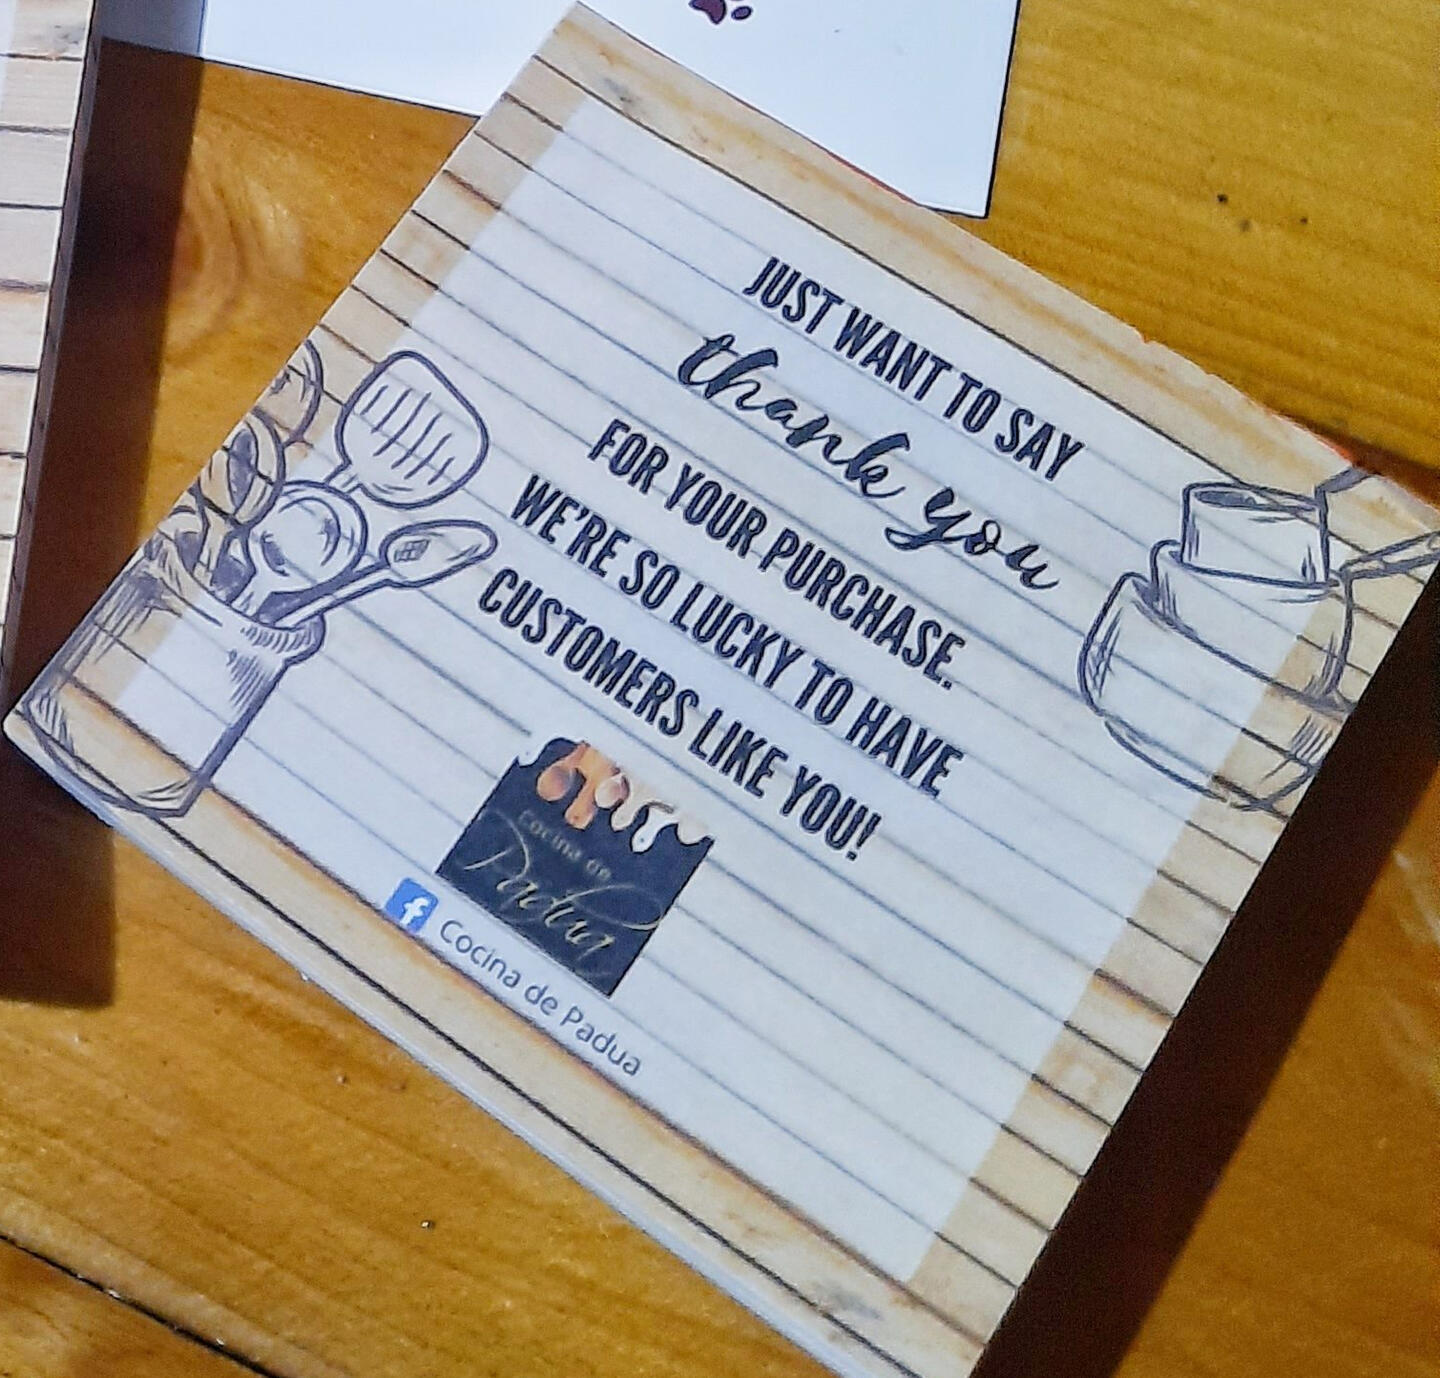 JUST WANT TO SAY
thank you
FOR YOUR PURCHASE.
WE'RE SO LUCKY TO HAVE
CUSTOMERS LIKE YOU!
cocina de
Padua
f Cocina de Padua